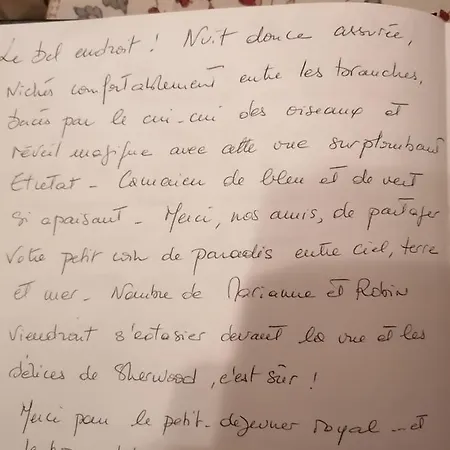 Le bel endroit ! Nuit douce assurée,
Nichés confortablement entre les branches,
bercés par le cui-cui des oiseaux et
réveil magifique avec cette vue surplombant
Etretat - Camaïeu de bleu et de vert
si apaisant - Merci, nos amis, de partager
votre petit coin de paradis entre ciel, terre
et mer - Nombre de Marianne et Robin
viendront s'extasier devant la vue et les
délices de Sherwood, c'est sûr !
Merci pour le petit-dejeuner royal - et